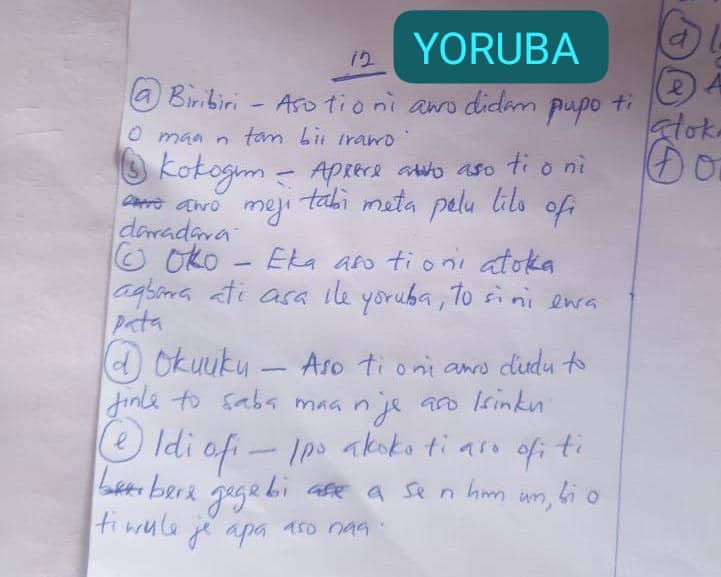 YORUBA
12
(a) Biribiri - Aso ti o ni awo didan pupo ti
o maa n tan bii irawo
(b) Kokogun - Apeere awo aso ti o ni
awo awo meji tabi meta pelu lilo ofi
daradara
(c) OKO - Eka aso ti o ni atoka
agbara ati asa ile yoruba, to si ni ewa
pata
(d) Okuuku - Aso ti o ni awo dudu to
jinle to saba maa n je aso Isinku
(e) Idi ofi - Ipo akoko ti aso ofi ti
bere gegebi a se n hun un, bi o
ti wule je apa aso naa.
(d)
(e) A
atok
(f) O